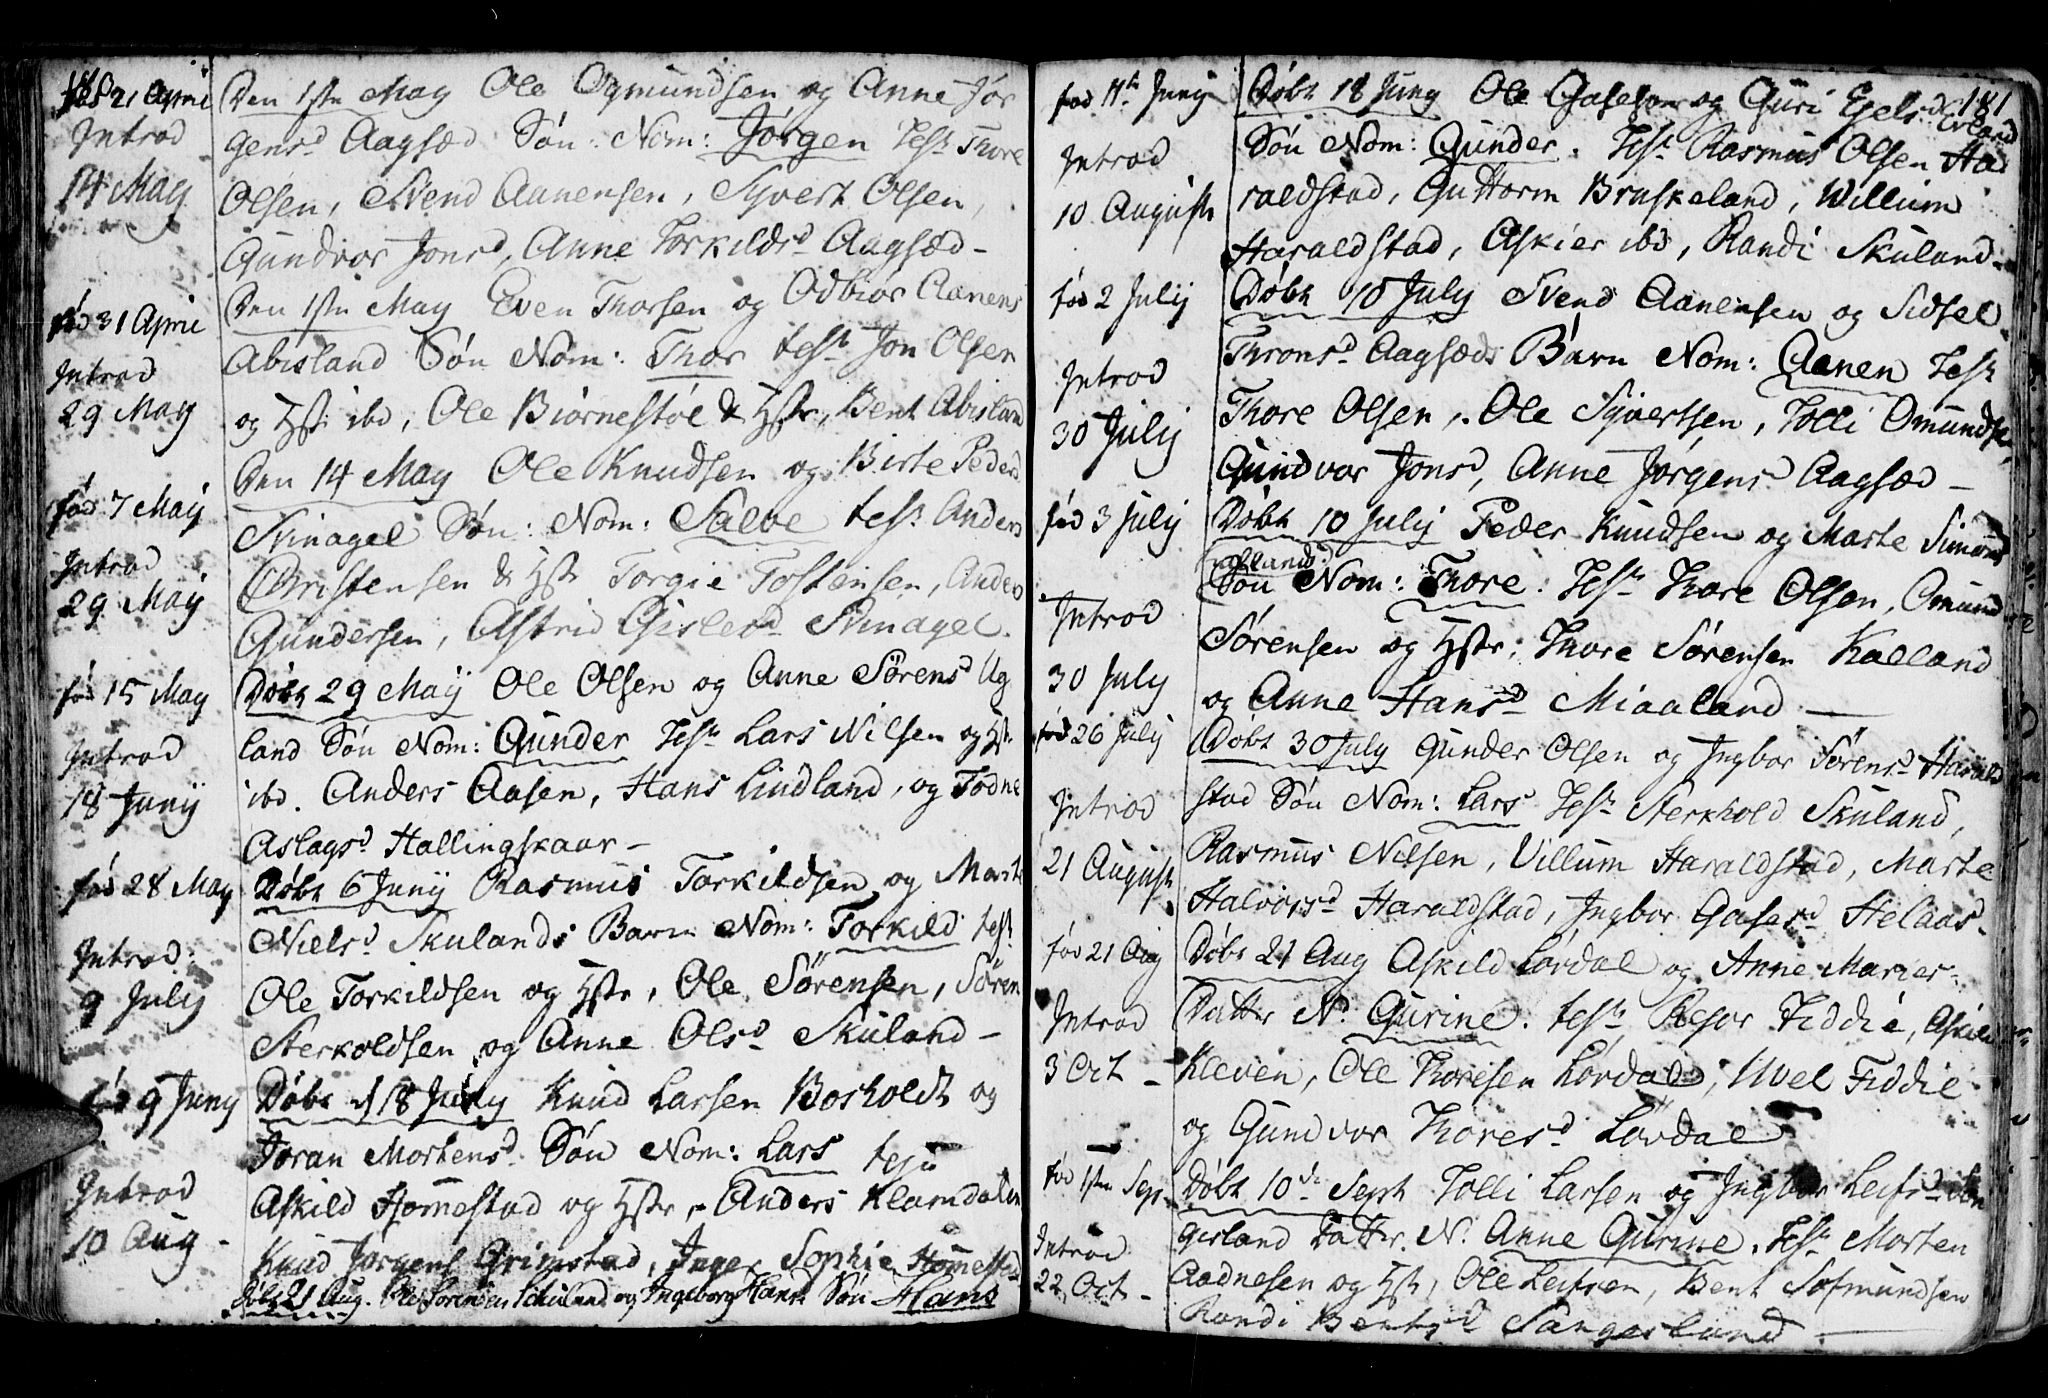 fød 21 April
Introd
14 May
Den 1ste May Ole Ogmundsen og Anne Jør
gensd Aagsæd Søn: Nom: Jørgen Test Thore
Olsen, Svend Aanensen, Syvert Olsen,
Gundvor Jonsd, Anne Torkildsd Aagsæd –
fød 31 April
Introd
29 May
Den 1ste May Even Thorsen og Odbiør Aanens
Abisland Søn Nom: Thor test Jon Olsen
og Hstr ibd, Ole Biørnestøl & Hstr, Bent Abisland
fød 7 Maij
Introd
29 Maij
Den 14 May Ole Knudsen og Birte Pedersd
Svinagel Søn: Nom: Salve test Anders
Christensen & Hstr Torgie Tostensen, Anders
Gundersen, Astrid Gislesd Svinagel.
fød 15 May
Introd
18 Junij
Døbt 29 Maij Ole Olsen og Anne Sørensd Ug
land Søn Nom: Gunder Test Lars Nilsen og Hstr
ibd. Anders Aasen, Hans Lindland, og Todne
Aslagsd Hallingskaar –
fød 28 May
Introd:
9 July
Døbt 6 Junij Rasmus Torkildsen og Marte
Nielsd Skulands Barn Nom: Torkild test
Ole Torkildsen og Hstr, Ole Sørensen, Søren
Sterkoldsen og Anne Olsd Skuland –
fød 9 Juny
Introd
10 Aug –
Døbt d 18 July Knud Larsen Bosholdt og
Joran Mortensd Søn Nom: Lars test
Askild Hommestad og Hstr, Anders Klamdalen
Knud Jørgens Grimstad, Inger Sophie Hommestad
Døbt 21 Aug. Ole Sørensen Schuland og Ingeborg Hansd Søn Hans
181
fød 11te Junij
Introd
10 August
Døbt 18 Juny Ole Gasesen og Guri Egelsd
Søn Nom: Gunder. Test Rasmus Olsen Ha
raldstad, Guttorm Bruskeland, Willum
Haraldstad, Askier ibd, Randi Skuland –
fød 2 Julij
Introd
30 Julij
Døbt 10 July Svend Aanensen og Sidsel
Thronsd Aagsæds Barn Nom: Aanen Test
Thore Olsen, Ole Syvertsen, Tolli Omunds,
Gundvor Jonsd, Anne Jørgensd Aagsæd –
fød 3 Julij
Introd
30 July
Døbt 10 Julij Peder Knudsen og Marte Simons
Søn Nom: Thore: Test Thore Olsen, Omund
Sørensen og Hstr, Thore Sørensen Kalland
og Anne Hansd Miaaland –
fød 26 July
Introd
21 August
Døbt 30 July Gunder Olsen og Ingbor Sørensd Harald
stad Søn Nom: Lars Test Sterkhold Skuland,
Rasmus Nilsen, Villum Haraldstad, Marte
Halvorsd Haraldstad, Ingbor Gasesd Helaas.
fød 21 Aug
Introd
3 Oct –
Døbt 21 Aug Askild Lovdal og Anne Maries
Datter N. Gurine. test Resor Fiddie, Askild
Kleven, Ole Thoresen Lovdal, Uvel Fiddie
og Gundvor Thoresd Lovdal
fød 1ste Sep.
Introd
22 Oct –
Døbt 10de Sept Tolli Larsen og Ingbor Leifsd San
gesland Datter N. Anne Gurine, Test Morten
Aadnesen og Hstr, Ole Leifsen, Bent Sofmundsen
Randi Bentsd Sangesland –